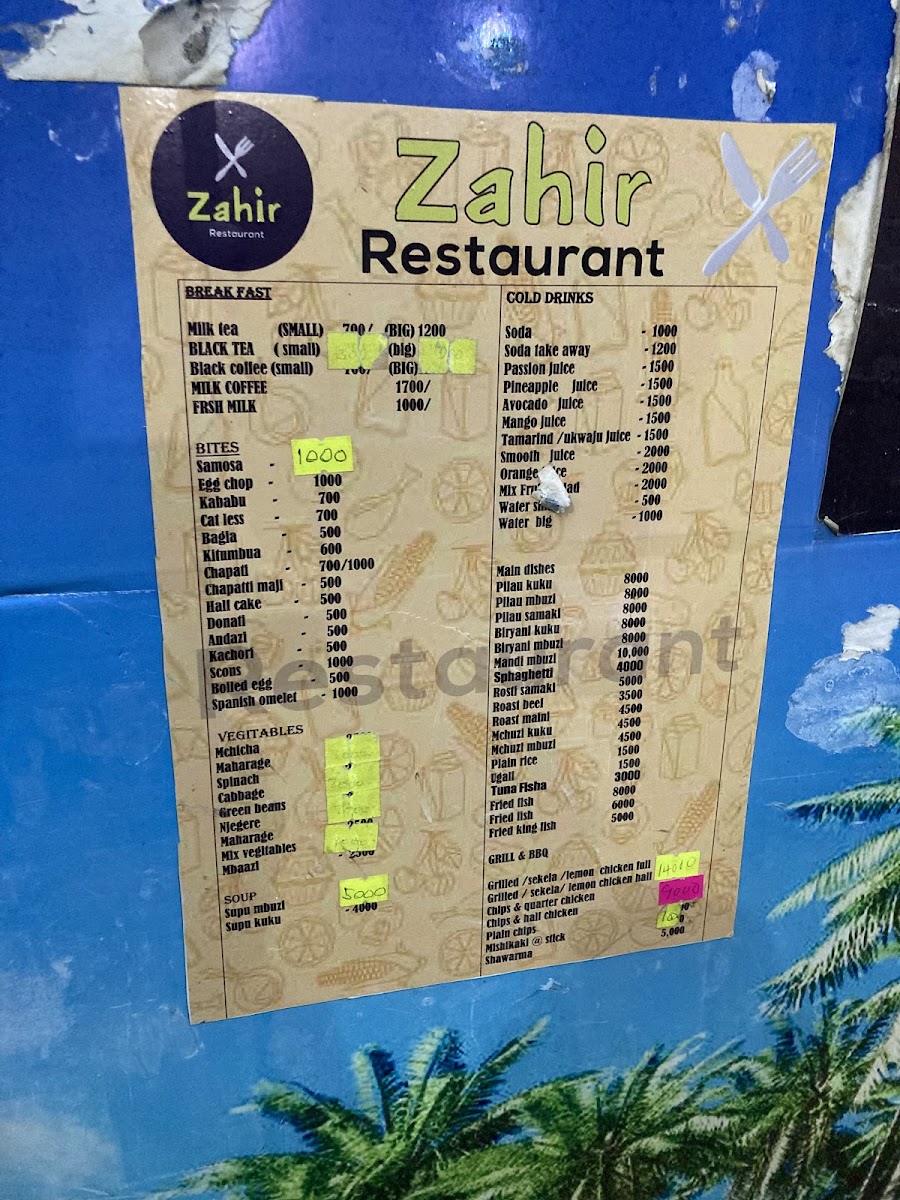 Zahir
Restaurant
Zahir
Restaurant
BREAK FAST
Milk tea (SMALL) 700/ (BIG) 1200
BLACK TEA ( small) (big)
Black coffee (small) (BIG)
MILK COFFEE 1700/
FRSH MILK 1000/
BITES
Samosa - 1000
Egg chop - 1000
Kababu - 700
Cat less - 700
Bagia - 500
Kitumbua - 600
Chapati - 700/1000
Chapatti maji - 500
Half cake - 500
Donati - 500
Andazi - 500
Kachori - 500
Scons - 1000
Boiled egg - 500
Spanish omelet - 1000
VEGITABLES
Mchicha
Maharage
Spinach
Cabbage
Green beans
Njegere
Maharage
Mix vegitables
Mbaazi - 2500
SOUP
Supu mbuzi 5000
Supu kuku - 4000
COLD DRINKS
Soda - 1000
Soda take away - 1200
Passion juice - 1500
Pineapple juice - 1500
Avocado juice - 1500
Mango juice - 1500
Tamarind /ukwaju juice - 1500
Smooth juice - 2000
Orange - 2000
Mix - 2000
Water - 500
Water big - 1000
Main dishes
Pilau kuku 8000
Pilau mbuzi 8000
Pilau samaki 8000
Biryani kuku 8000
Biryani mbuzi 8000
Mandi mbuzi 10,000
Sphaghetti 4000
Rosti samaki 5000
Roast beef 3500
Roast maini 4500
Mchuzi kuku 4500
Mchuzi mbuzi 4500
Plain rice 1500
Ugali 1500
Tuna Fisha 3000
Fried fish 8000
Fried fish 6000
Fried king fish 5000
GRILL & BBQ
Grilled /sekela/lemon chicken full
Grilled / sekela/ lemon chicken half
Chips & quarter chicken 9000
Chips & half chicken
Plain chips
Mishikaki @ stick
Shawarma 5,000
Restaurant